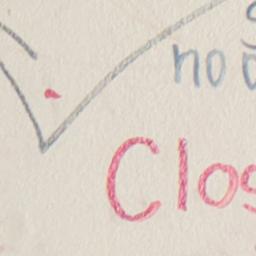 no
Clos